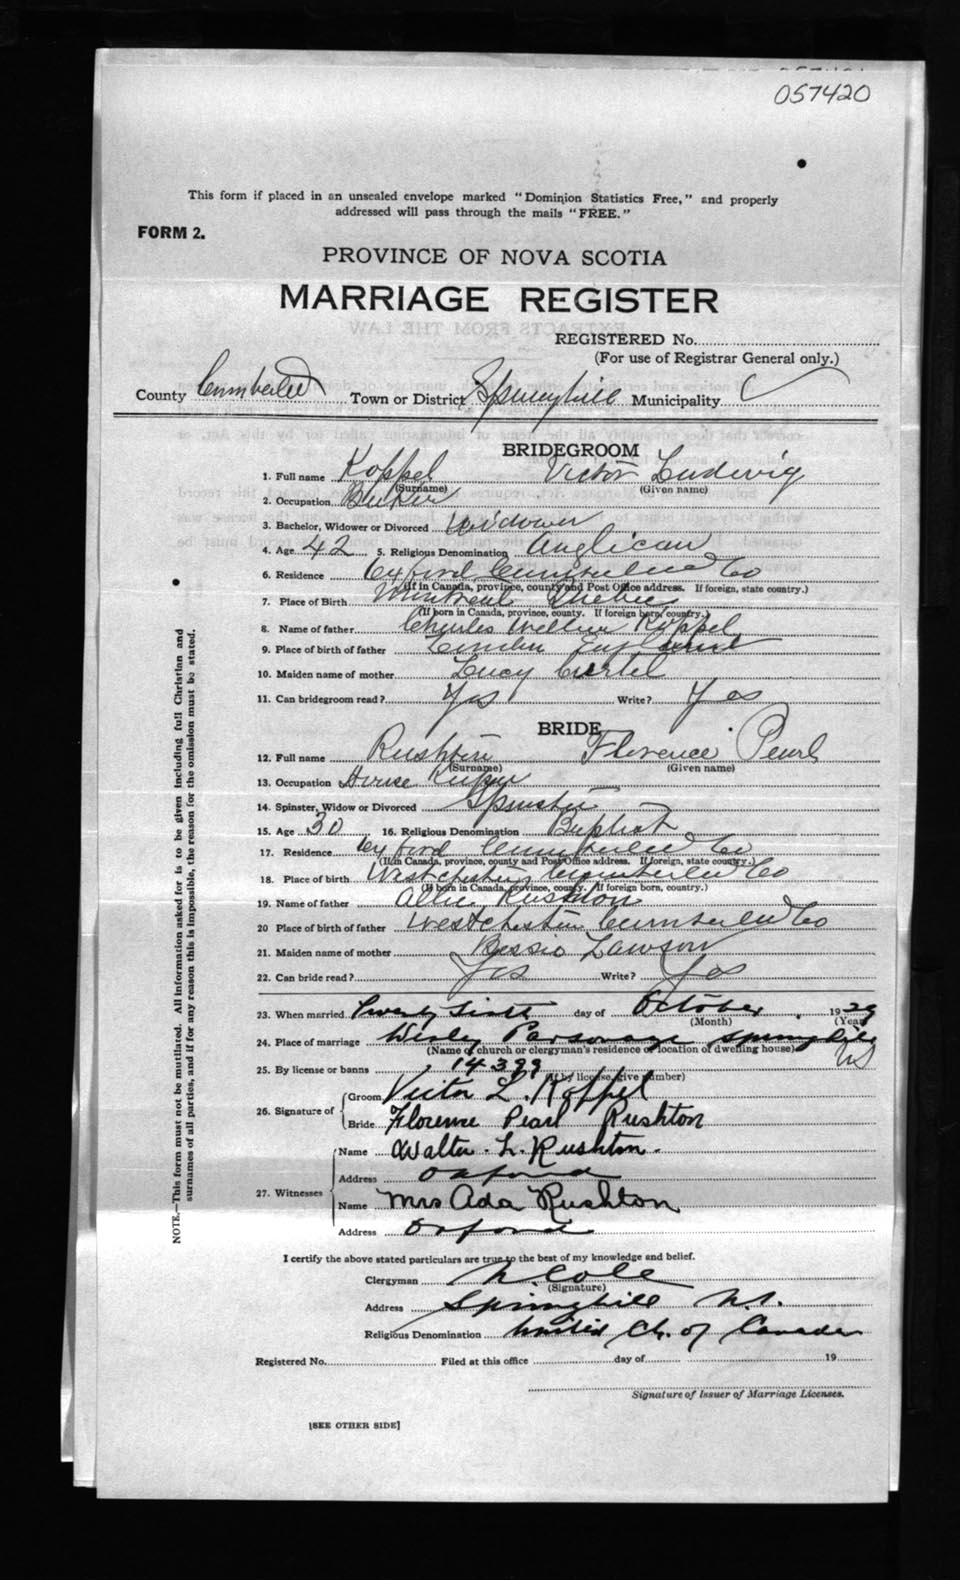 057420
This form if placed in an unsealed envelope marked "Dominion Statistics Free," and properly
addressed will pass through the mails "FREE."
FORM 2.
PROVINCE OF NOVA SCOTIA
MARRIAGE REGISTER
REGISTERED No.
(For use of Registrar General only.)
County Cumberland Town or District Springhill Municipality
BRIDEGROOM
1. Full name Koppel Victor Ludwig
(Surname) (Given name)
2. Occupation Baker
3. Bachelor, Widower or Divorced Widower
4. Age 42 5. Religious Denomination Anglican
6. Residence Oxford Cumberland Co
(If in Canada, province, county and Post Office address. If foreign, state country.)
7. Place of Birth Montreal Quebec
(If born in Canada, province, county. If foreign born, country.)
8. Name of father Charles William Koppel
9. Place of birth of father London England
10. Maiden name of mother Lucy
11. Can bridegroom read? Yes Write? Yes
BRIDE
12. Full name Rushton Florence Pearl
(Surname) (Given name)
13. Occupation House Keeper
14. Spinster, Widow or Divorced Spinster
15. Age 30 16. Religious Denomination Baptist
17. Residence Oxford Cumberland Co
(If in Canada, province, county and Post Office address. If foreign, state country.)
18. Place of birth Westchester Cumberland Co
(If born in Canada, province, county. If foreign born, country.)
19. Name of father Rushton
20 Place of birth of father Westchester Cumberland Co
21. Maiden name of mother Bessie Lawson
22. Can bride read? Yes Write? Yes
23. When married Twenty Sixth day of October 1929
(Month) (Year)
24. Place of marriage Wesley Parsonage Springhill
(Name of church or clergyman's residence or location of dwelling house) NS
25. By license or banns 14399
(If by license, give number)
26. Signature of
Groom Victor L. Koppel
Bride Florence Pearl Rushton
27. Witnesses
Name Walter L. Rushton.
Address Oxford
Name Mrs Ada Rushton
Address Oxford
I certify the above stated particulars are true to the best of my knowledge and belief.
Clergyman Cole
(Signature)
Address Springhill N.S.
Religious Denomination United Ch. of Canada
Registered No. Filed at this office day of 19
Signature of Issuer of Marriage Licenses.
[SEE OTHER SIDE]
NOTE.—This form must not be mutilated. All information asked for is to be given including full Christian and
surnames of all parties, and if for any reason this is impossible, the reason for the omission must be stated.